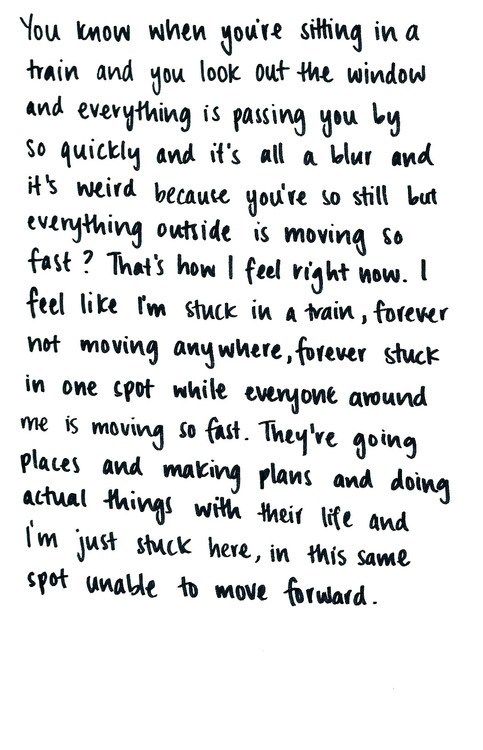 You know when you're sitting in a
train and you look out the window
and everything is passing you by
so quickly and it's all a blur and
it's weird because you're so still but
everything outside is moving so
fast? That's how I feel right now. I
feel like I'm stuck in a train, forever
not moving anywhere, forever stuck
in one spot while everyone around
me is moving so fast. They're going
places and making plans and doing
actual things with their life and
I'm just stuck here, in this same
spot unable to move forward.